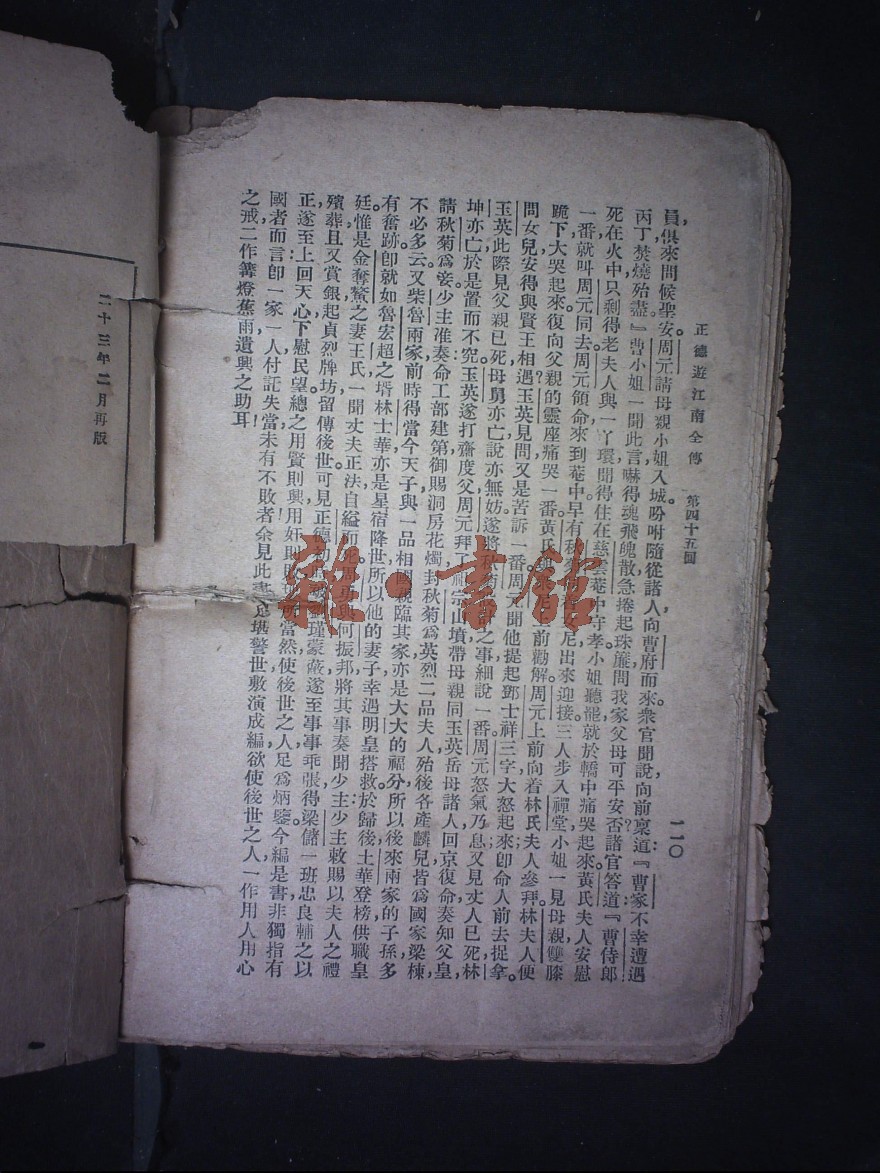 正德遊江南全傳 第四十五回 一一〇
員，俱來問候聖安。周元請母親小姐入城，吩咐隨從諸人，向曹府而來。衆官聞說，向前稟道：『曹家不幸，遭遇
丙丁，焚燒殆盡。』曹小姐一聞此言，嚇得魂飛魄散，急捲起珠簾，問我家父母可平安否？諸官答道：『曹侍郎
死在火中，只剩得老夫人與一丫環，聞得住在慈雲菴中守孝。小姐聽罷，就於轎中痛哭起來。黃氏夫人安慰
一番，就叫周元同去，周元領命，來到菴中，早有 尼出來迎接。三人步入禪堂，小姐一見母親，雙膝
跪下，大哭起來。復向父親的靈座痛哭一番，黃氏 上前勸解。周元上前向着林氏夫人參拜。林夫人便
問女兒安得與賢王相遇？玉英見問，又是苦訴一番。周元聞他提起鄧士祥三字，大怒起來，卽命人前去捉拿。
玉英此際見父親已死，母舅亦亡，說亦無妨，遂將秋菊 之事，細說一番，周元怒氣乃息，又見丈人已死，林
坤亦亡，於是置而不究。玉英遂打齋度父，周元拜了祖宗山墳，帶母親同玉英岳母諸人，回京復命，奏知父皇，
請秋菊爲妾，少主准奏，命工部建第，御賜洞房花燭，封秋菊爲英烈二品夫人，殆後各產麟兒，皆爲國家梁棟，
不必多云。又柴魯兩家，前時得當今天子與一品相國親臨其家，亦是大大的福分，所以後來兩家的子孫，多
有奮跡，卽就如魯宏超之壻林士華，亦是星宿降世，所以他的妻子，幸遇明皇搭救，於歸後，士華登榜，供職皇
廷。惟是金奪鰲之妻王氏，一聞丈夫正法，自縊而死， 何振邦將其事奏聞少主，少主敕賜以夫人之禮
殯葬，且又賞銀起貞烈牌坊，留傳後世，可見正德初 劉瑾蒙蔽，遂至事事乖張，得梁儲一班忠良輔之，以
正遂至上回天心，下慰民望，總之用賢則興，用奸則敗， 所當然，使後世之人，足爲炳鑒，今編是書，非獨指有
國者而言，卽一家一人，付託失當，未有不敗者，余見此書，足堪警世，敷演成編，欲使後世之人，一作用人用心
之戒，二作篝燈蕉雨遺興之助耳！
二十三年二月再版
雜·書館